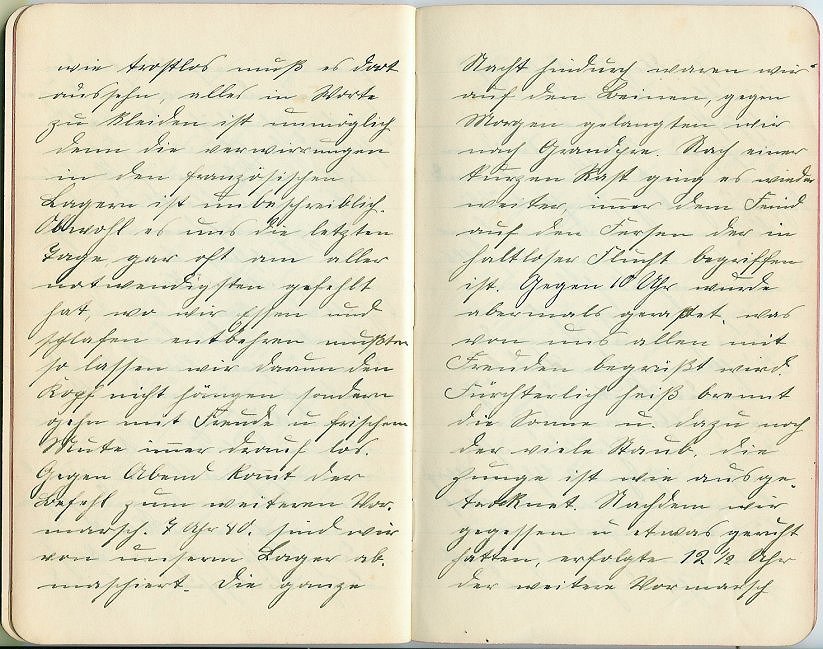 wie trostlos muß es dort
aussehn, alles in Worte
zu kleiden ist unmöglich
denn die verwirrungen
in den französischen
Lagern ist unbeschreiblich.
Obwohl es uns die letzten
Tage gar oft am aller
notwendigsten gefehlt
hat, wo wir Essen und
schlafen entbehren mußten
so lassen wir darum den
Kopf nicht hängen sondern
gehn mit Freude u frischem
Mute im̄er drauf los.
Gegen Abend kom̄t der
Befehl zum weiteren Vor-
marsch. 7 Uhr 40. sind wir
von unserm Lager ab-
maschiert. Die ganze
Nacht hindurch waren wir
auf den Beinen, gegen
Morgen gelangten wir
nach Grandpre. Nach einer
kurzen Rast ging es wieder
weiter, im̄er dem Feind
auf den Fersen der in
haltloser Flucht begriffen
ist. Gegen 10 Uhr wurde
abermals gerastet, was
von uns allen mit
Freuden begrüßt wird.
Fürchterlich heiß brennt
die Sonne u. dazu noch
der viele Staub, die
Zunge ist wie ausge-
trocknet. Nachdem wir
gegessen u etwas geruht
hatten, erfolgte 12 1/2 Uhr
der weitere Vormarsch